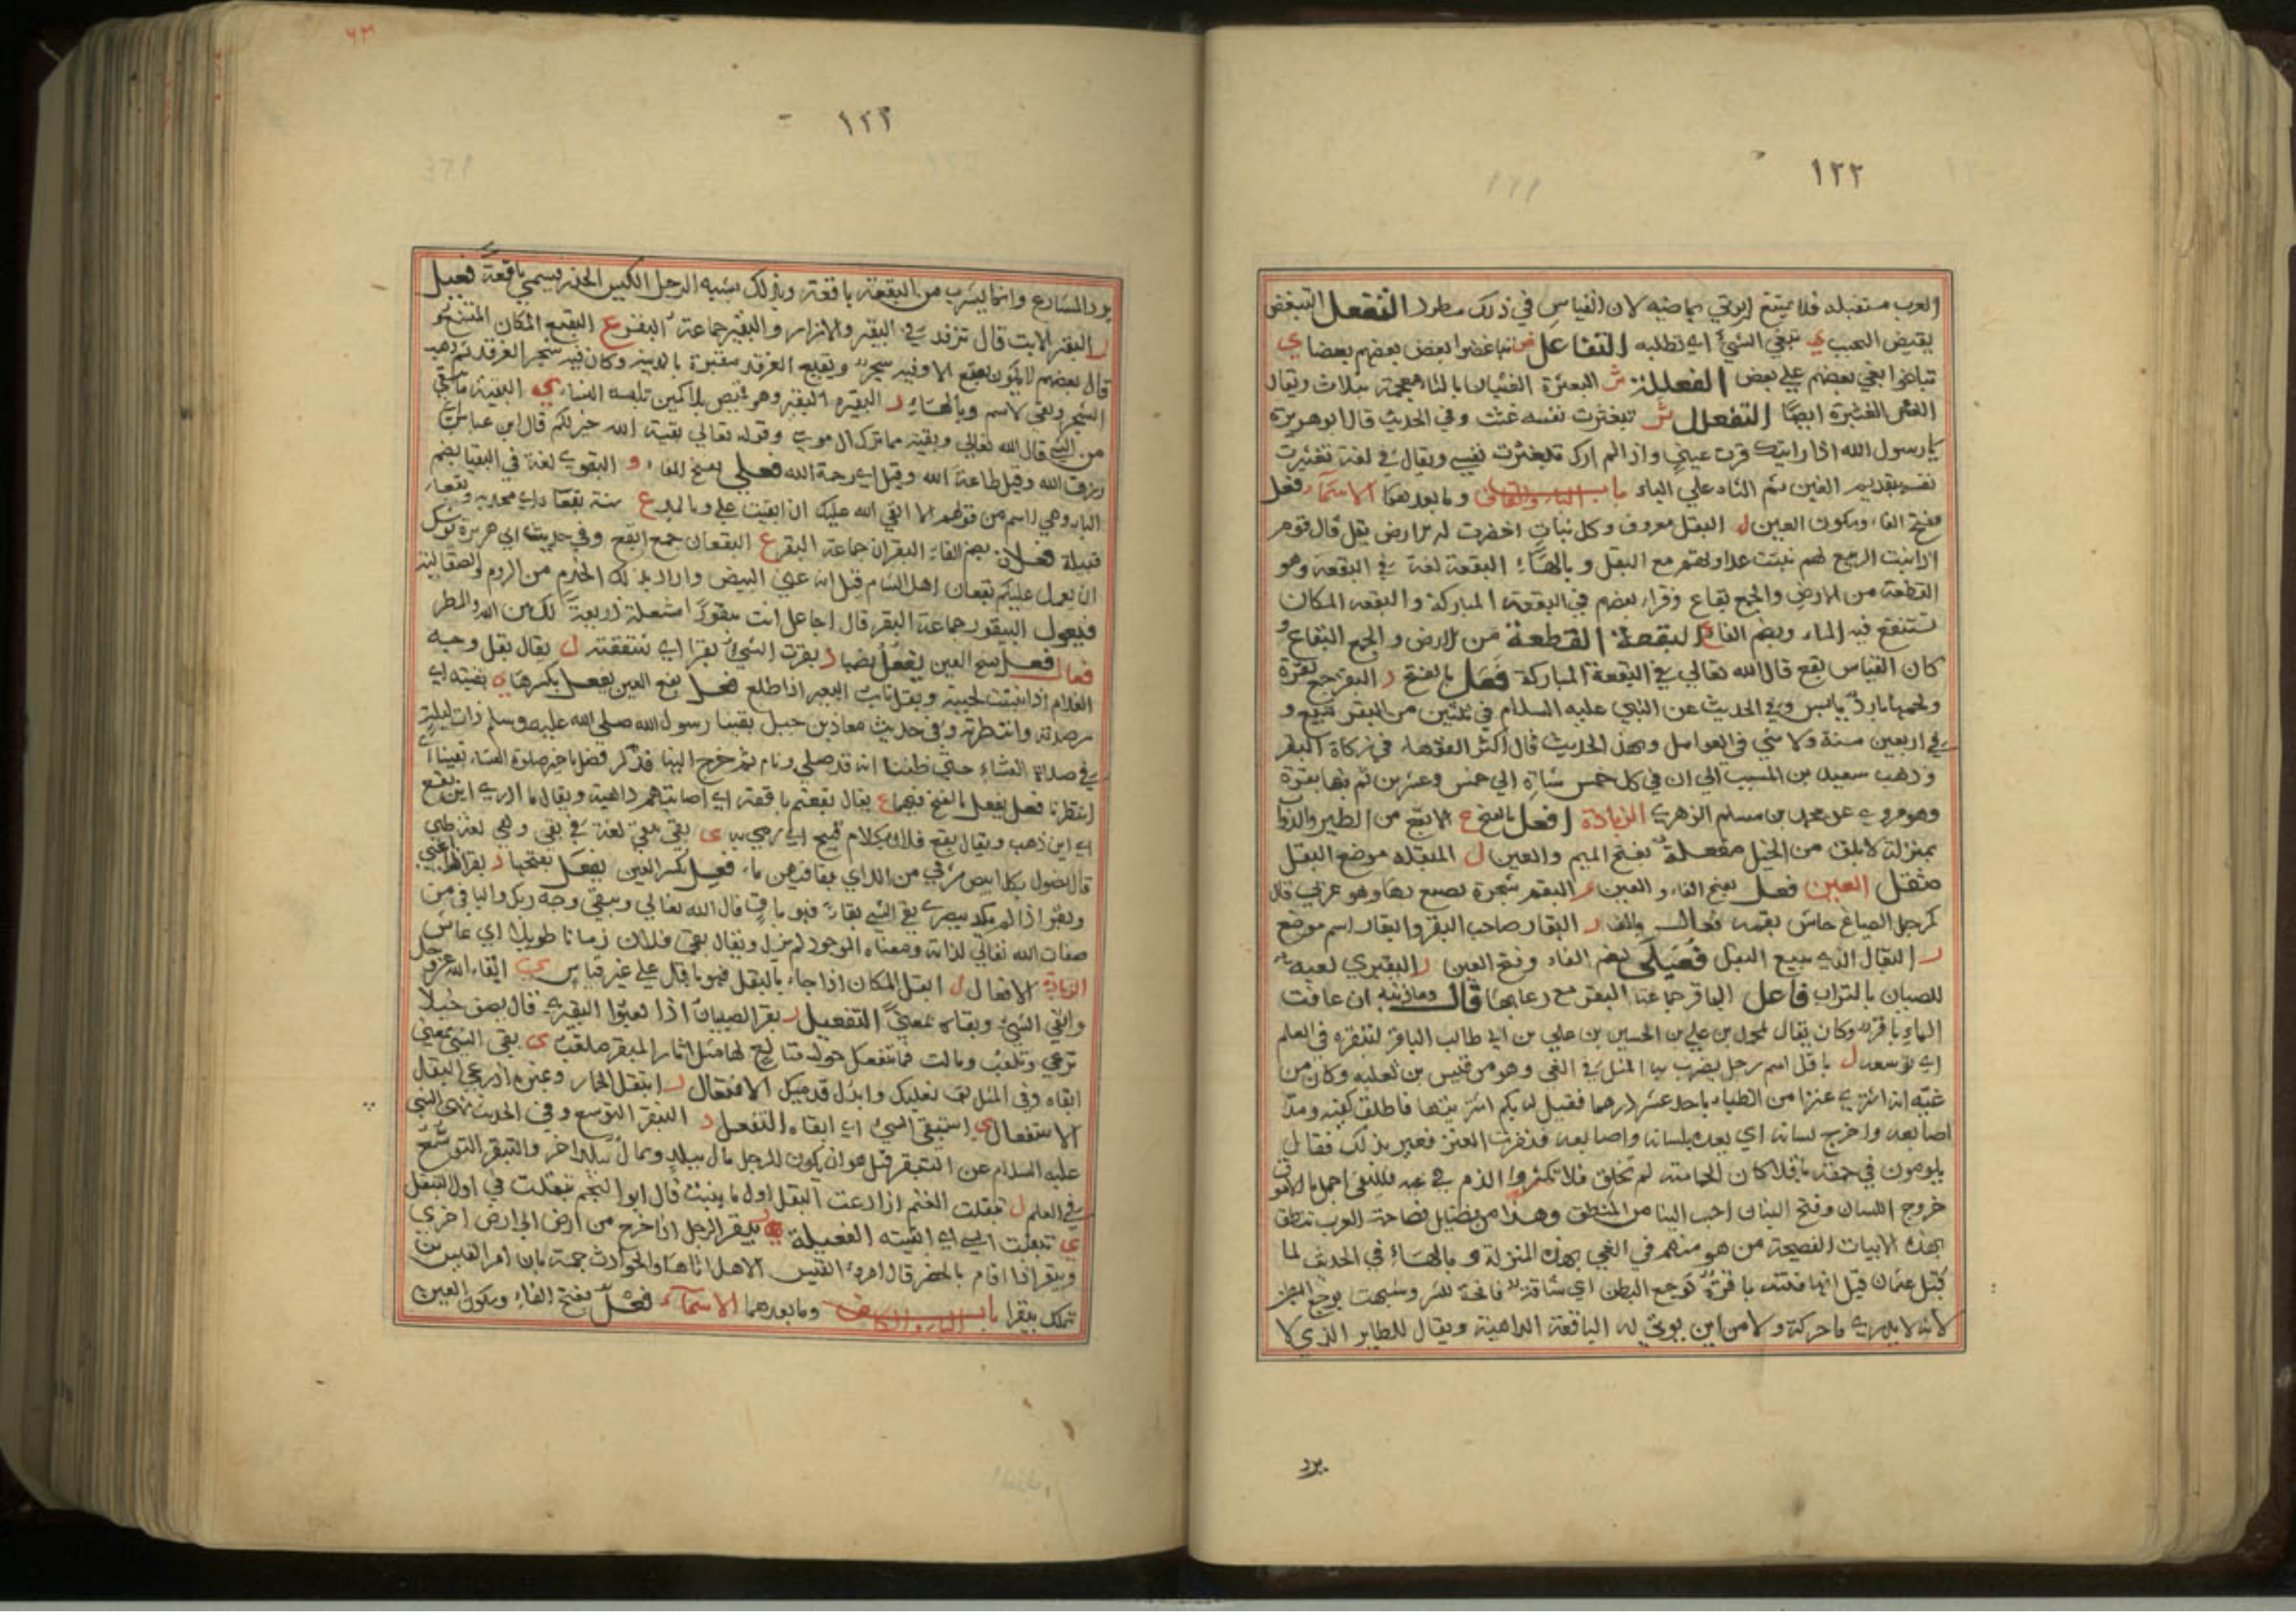 ١٢٢
العرب مستقبله فلا يمتنع ان يوتي بماضيه لان القياس في ذلك مطرد التفعل التبغض
نقيض التحبب ي تبغى الشيء اي تطلبه التفاعل ض تباغضوا ابغض بعضهم بعضا ي
تباغوا بغي بعضهم علي بعض الفعللة ث البعثرة الغثيان بالثاء معجمة بثلاث ويقال
التفعلل ث تبغثرت نفسه غثت وفي الحديث قال ابو هريرة
يا رسول الله اذا رايتك قرت عيني واذا لم ارك تبغثرت نفسي ويقال في لغة تغبثرت
نفسه بتقديم الغين ثم الثاء علي الباء باب الباء والقاف وما بعدهما الاسماء فعل
بفتح الفاء وسكون العين ل البقل معروف وكل نبات اخضرت له الارض بقل قال
نبتت عداوتهم مع البقل وبالهاء البقعة لغة في البقعة وهو
القطعة من الارض والجمع بقاع وقرا بعضهم في البقعة المباركة والبقعة المكان
يستنقع فيه الماء وبضم الفاء ع البقعة القطعة من الارض والجمع البقاع و
كان القياس بقع قال الله تعالي في البقعة المباركة فعل بالفتح ر البقر جمع بقرة
ولحمها بارد يابس وفي الحديث عن النبي عليه السلام في ثلثين من البقر تبيع و
في اربعين مسنة ولا شي في العوامل وبهذا الحديث قال اكثر الفقهاء في زكاة البقر
وذهب سعيد بن المسيب الي ان في كل خمس شاة الي خمس وعشرين ثم فيها بقرة
وهو مروي عن محمد بن مسلم الزهري الزيادة افعل بالفتح ع الابقع من الطير والدواب
بمنزلة الابلق من الخيل مفعلة بفتح الميم والعين ل المبقلة موضع البقل
مثقل العين فعل بفتح الفاء والعين م البقم شجرة يصبغ بها وهو عربي قال
كمرجل الصباغ جاش بقمه فعال بالف ر البقار صاحب البقر والبقار اسم موضع
ل البقال الذي يبيع البقل فعيلى بضم الفاء وفتح العين ر البقيري لعبة
للصبيان بالتراب فاعل الباقر جماعة البقر مع رعاتها قال وماذنبه ان عافت
الماء باقر وكان يقال لمحمد بن علي بن الحسين بن علي بن ابي طالب الباقر لتبقره في العلم
اي توسعه ل باقل اسم رجل يضرب به المثل في العي وهو من قيس بن ثعلبة وكان من
عيه انه اشتري عنزا من الظباء باحد عشر درهما فقيل له بكم اشتريتها فاطلق كفيه ومد
اصابعه واخرج لسانه اي يعده بلسانه واصابعه فنفرت العنز فعير بذلك فقال
يلومون في حمقه باقلا كان الحماقة لم تخلق فلا تكثروا الذم في عيه فللعي اجمل بالاموق
خروج اللسان وفتح البنان احب الينا من المنطق وهذا من فضايل فصاحة العرب تنطق
بهذه الابيات الفصيحة من هو منهم في العي بهذه المنزلة وبالهاء في الحديث لما
قتل عثمان قيل انها فتنة باقرة كوجع البطن اي شاقة
لانه لا يدري ما حركه ولا من اين يوتي له الباقعة الداهية ويقال للطاير الذي لا
يرد
١٢٣
يرد المشارع وانما يشرب من البقعة باقعة وبذلك يشبه الرجل الكيس الحذر فيسمي باقعة فعيل
ر البقير الاتب قال تزفد في البقير والازار والبقير جماعة البقر ع البقيع المكان المتسع و
قال بعضهم لا يكون بقيع الا وفيه شجر وبقيع الغرقد مقبرة بالمدينة وكان فيه شجر الغرقد ثم ذهب
الشجر وبقي الاسم وبالهاء ر البقيرة البقير وهو قميص بلا كمين تلبسه النساء ي البقية ما بقي
من الشي قال الله تعالي وبقية مما ترك ال موسي وقوله تعالي بقية الله خير لكم قال ابن عباس
رزق الله وقيل طاعة الله وقيل اي رحمة الله فعلي بفتح الفاء و البقوي لغة في البقيا بضم
الباء وهي اسم من قولهم لا ابقي الله عليك ان ابقيت علي وبالمد ع سنة بقعاء اي مجدبة وبقعاء
قبيلة فعلان بضم الفاء البقران جماعة البقر ع البقعان جمع ابقع وفي حديث ابي هريرة يوشك
ان يعمل عليكم بقعان اهل الشام قيل انه عني البيض واراد بذلك الخدم من الروم والصقالبة
فيعول البيقور جماعة البقر قال اجاعل انت بيقورا مشعلة ذريعة لك بين الله والمطر
فعال فعل بفتح العين يفعل بضمها ر بقرت الشيء بقرا اي شققته ل يقال بقل وجه
الغلام اذا نبتت لحيته وبقل ناب البعير اذا طلع فعل بفتح العين يفعل بكسرها ي بقيته اي
رصدته وانتظرته وفي حديث معاذ بن جبل بقينا رسول الله صلي الله عليه وسلم ذات ليلة
في صلاة العشاء حتي ظننا انه قد صلي ونام ثم خرج الينا فذكر فضل تاخير صلاة العشاء بقينا اي
انتظرنا فعل يفعل بالفتح فيهما ع يقال بقعتهم باقعة اي اصابتهم داهية ويقال ما ادري اين بقع
اي اين ذهب ويقال بقع فلان بكلام قبيح اي رمي به ي بقي يبقي لغة في بقي وهي لغة طي
فعل بكسر العين يفعل بفتحها ر بقر
وبقر اذا لم يكد يبصر ي بقي الشي بقاء فهو باق قال الله تعالي ويبقي وجه ربك والباقي من
صفات الله تعالي لذاته ومعناه الموجود لم يزل ويقال بقي فلان زمانا طويلا اي عاش
الزيادة الافعال ل ابقل المكان اذا جاء بالبقل فهو باقل علي غير قياس ي ابقاه الله عز وجل
وابقي الشيء وبقاه بمعني التفعيل ر بقر الصبيان اذا لعبوا البقيري قال يصف خيلا
ي بقي الشي بمعني
ابقاه وفي المثل بق نعليك وابذل قدميك الافتعال ل ابتقل الحمار وغيره اذا رعي البقل
الاستفعال ي استبقي الشيء اي ابقاه التفعل ر التبقر التوسع وفي الحديث نهي النبي
عليه السلام عن التبقر قيل هو ان يكون للرجل مال ببلد ومال ببلد اخر والتبقر التوسع
في العلم ل تبقلت الغنم اذا رعت البقل اول ما ينبت قال ابو النجم تبقلت في اول التبقل
ي تبقيت الشي اي ابقيته الفيعلة ر بيقر الرجل اذا خرج من ارض الي ارض اخري
وبيقر اذا اقام بالحضر قال امرؤ القيس الا هل اتاها والحوادث جمة بان امرا القيس بن
تملك بيقرا باب الباء والكاف وما بعدهما الاسماء فعل بفتح الفاء وسكون العين